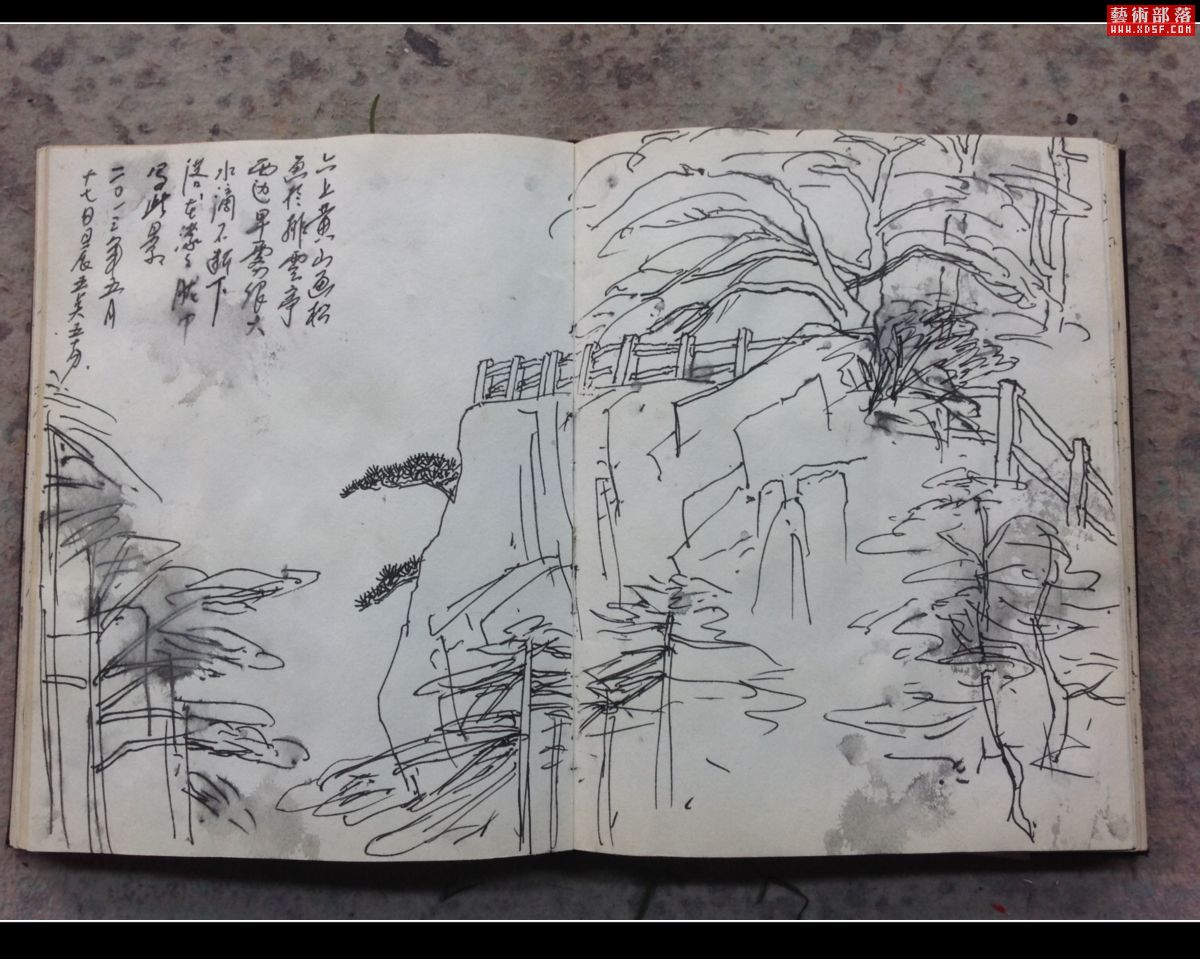 六上黄山画松
画于排云亭
西边早雾很大
水滴不断下
落在 
写此景
二〇一三年五月
十七日日辰五点五分.
藝術部落
WWW.XDSF.COM